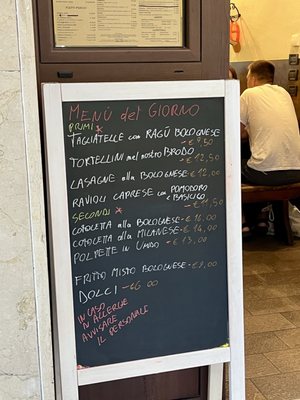 MENÙ del GIORNO
PRIMI *
TAGLIATELLE con RAGÙ BOLOGNESE
-€ 9,50
TORTELLINI nel nostro BRODO
-€ 12,50
LASAGNE alla BOLOGNESE-€ 12,00
RAVIOLI CAPRESE con POMODORO
e BASILICO
-€ 11,50
SECONDI *
COTOLETTA alla BOLOGNESE-€ 16,00
COTOLETTA alla MILANESE-€ 14,00
POLPETTE in UMIDO -€ 13,00
FRITTO MISTO BOLOGNESE-€ 9,00
DOLCI -€6.00
IN CASO
DI ALLERGIE
AVVISARE
IL PERSONALE